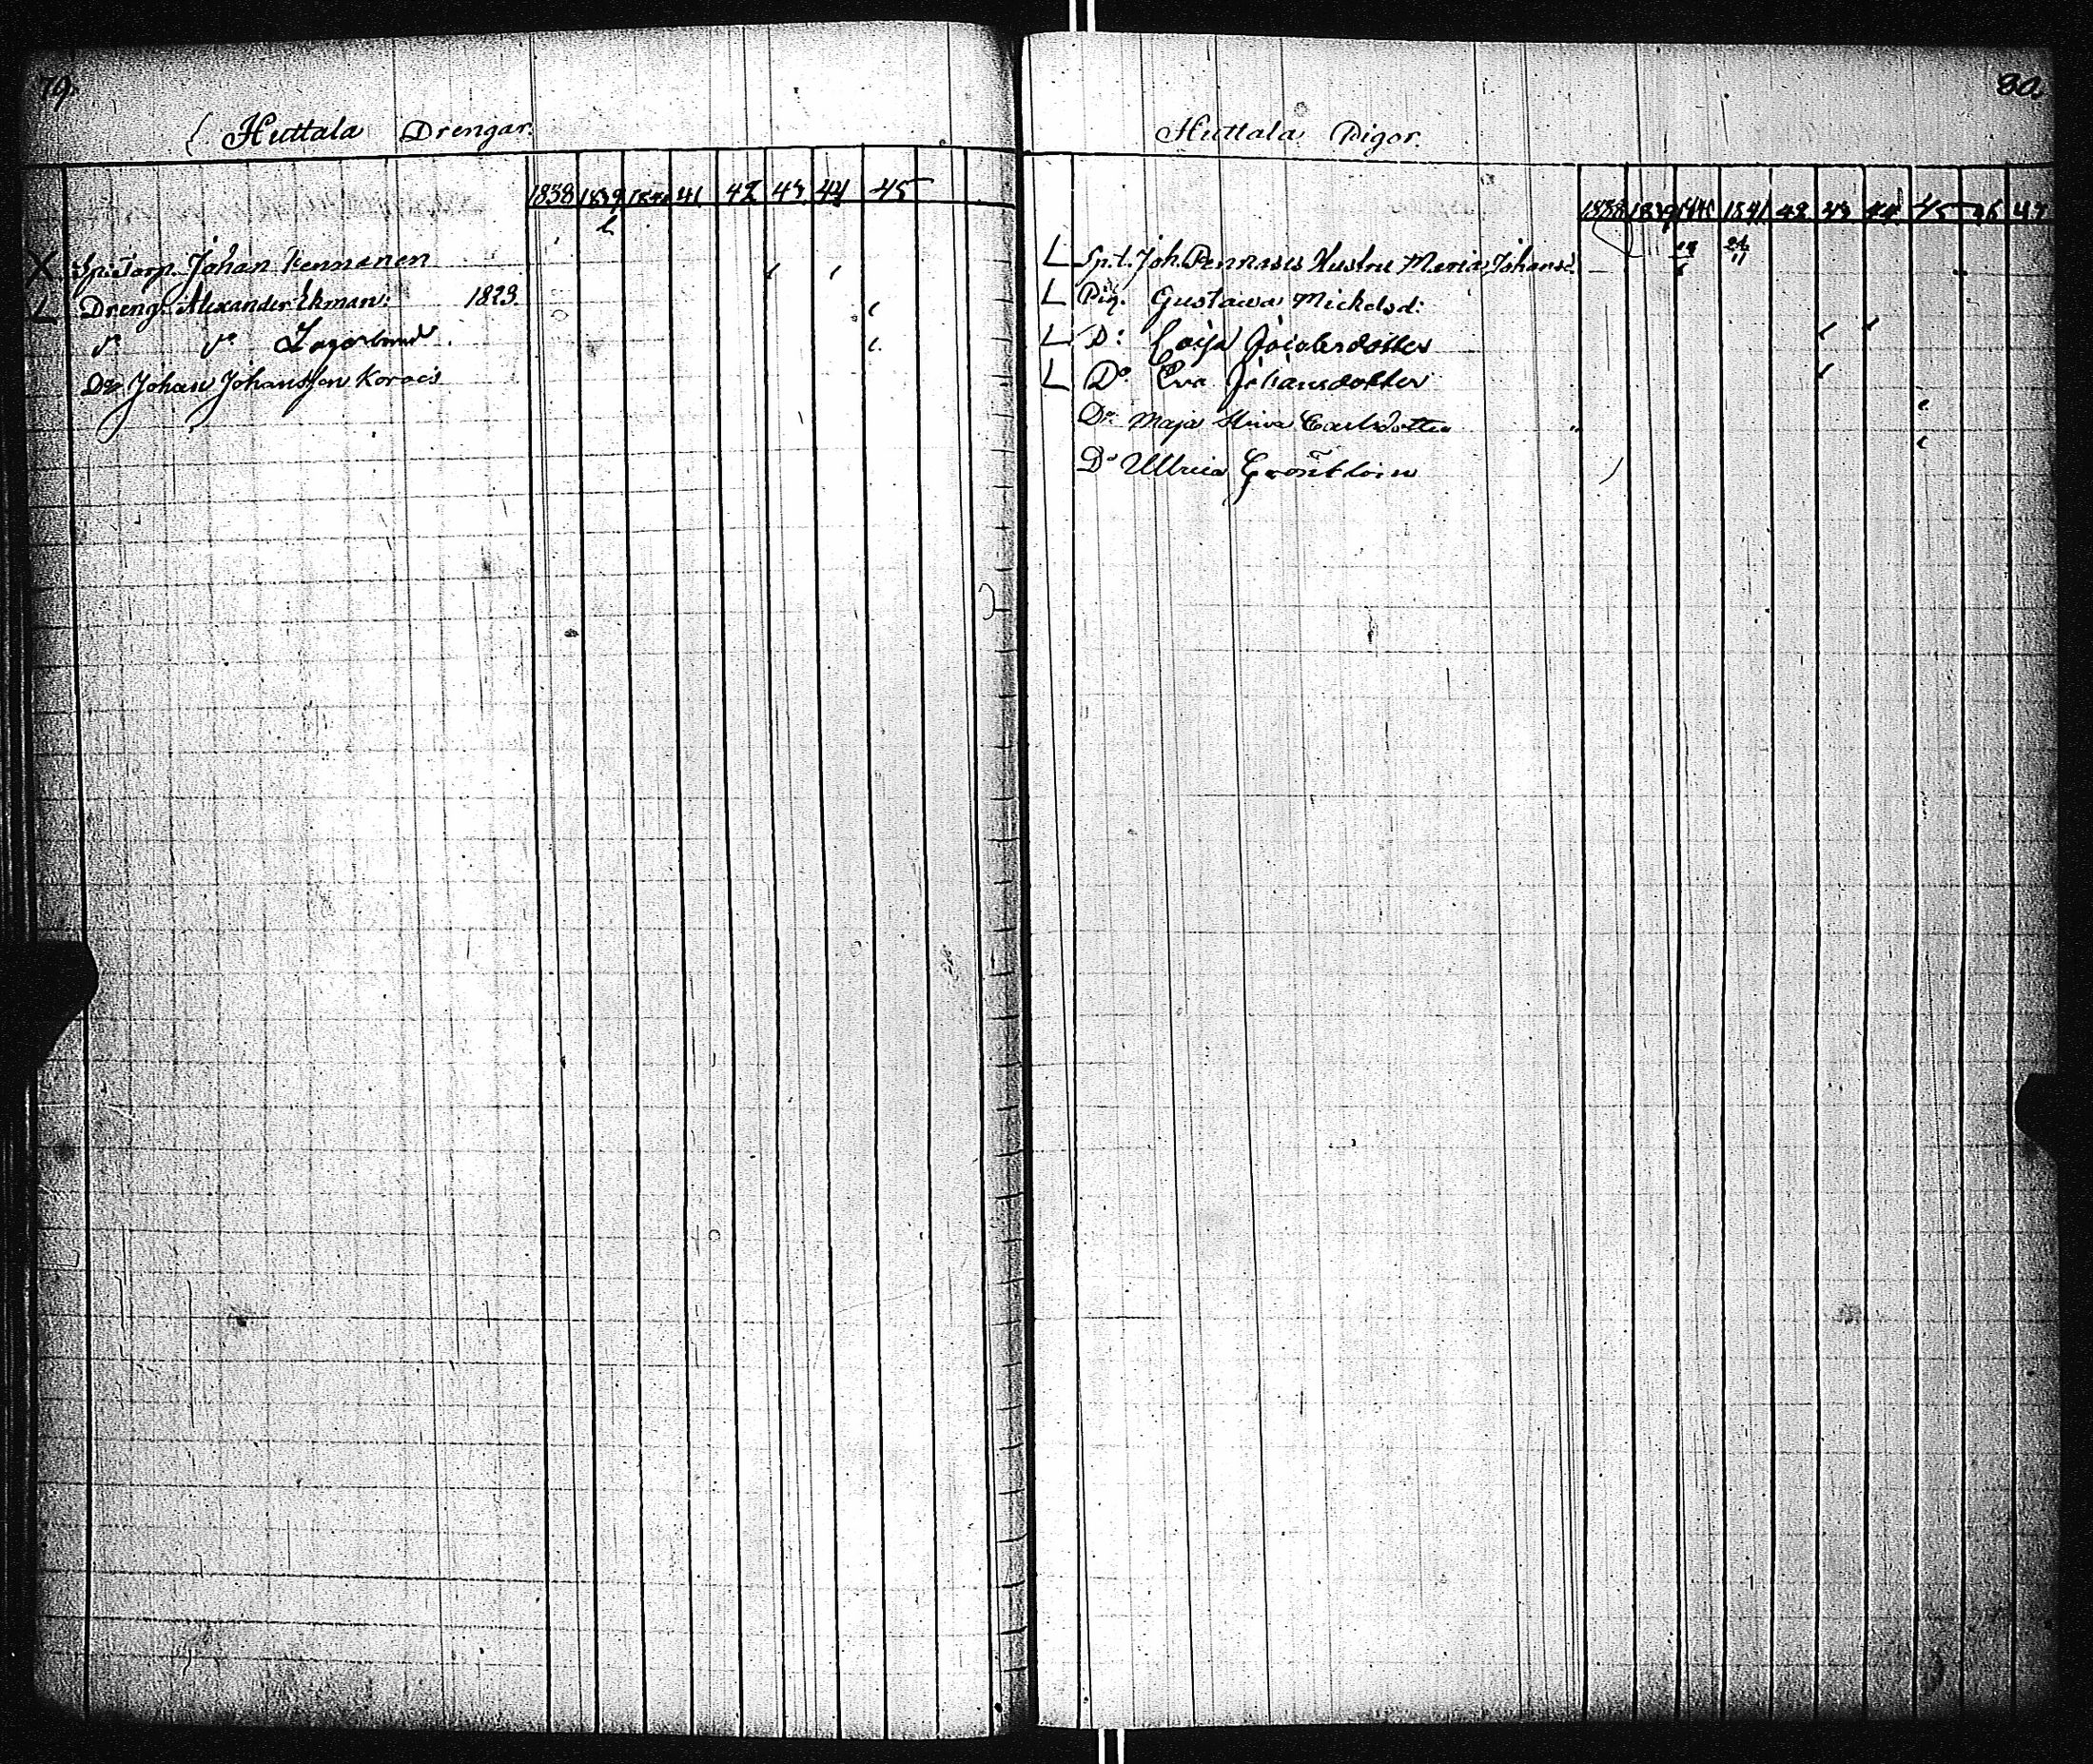 79.
Huttala Drengar.
1838 1839 1840 41 42 43 44 45
X Sp. Torp. Johan Pennanen
L Dreng. Alexander Ekman. 1823.
Do Johan Johansson
80.
Huttala Pigor.
1838 1839 1840 1841 42 43 44 45 46 47
L Sp. t. Joh. Hustru Maria Johansd.
L Pig. Gustava Mickelsd:
L D: Caisa Jacobsdotter
L Do Eva Johansdotter
Do Maja Stina Carlsdotter
Do Ulrica